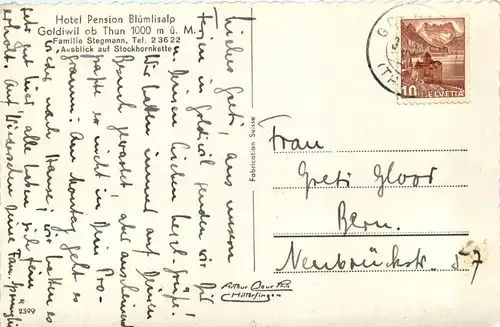 Hotel Pension Blümlisalp
Goldiwil ob Thun 1000 m ü. M.
Familie Stegmann, Tel. 2 36 22
„Ausblick auf Stockhornkette"
Liebes Greti, aus unsern
Ferien in Goldiwil senden wir Dir
u. Deinen Lieben herzl. Grüsse!
Wir hatten immer auf Deinen
Besuch gewartet, aber anscheinend
passte es nicht in Dein Pro-
gramm. Am Montag geht es
wieder nach Hause; wir hatten es
sehr gut hier, alle haben sich fein
erholt. Auf Wiedersehn Deine Fam.
2399
Fabrication Suisse
10 HELVETIA
Frau
Greti Gloor
Bern.
Neubrückstr. 57
Hilterfingen